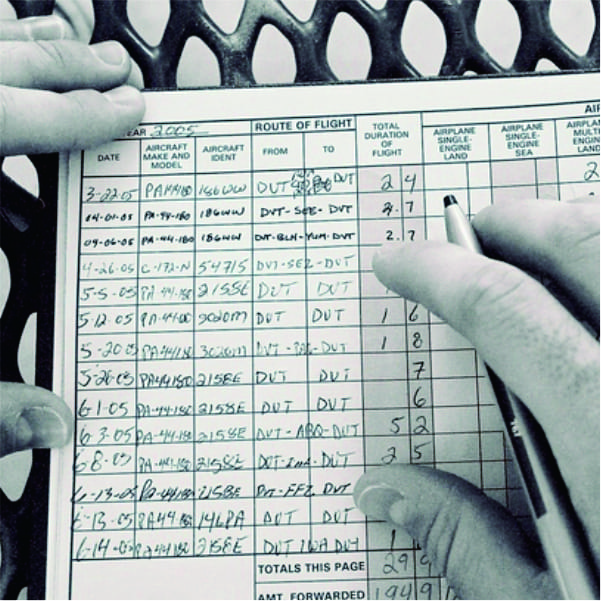 EAR 2005 ROUTE OF FLIGHT TOTAL DURATION OF FLIGHT AIRPLANE SINGLE-ENGINE LAND AIRPLANE SINGLE-ENGINE SEA AIRPLANE MULTI ENGINE LAND
DATE AIRCRAFT MAKE AND MODEL AIRCRAFT IDENT FROM TO
3-22-05 PA44180 186WW DVT DVT 2 4 2
04-01-05 PA-44-180 186WW DVT-SEE-DVT 2.7
04-06-05 PA-44-180 186WW DVT-BLH-YUM-DVT 2.7
4-26-05 C-172-N 54715 DVT-SEZ-DVT
5-5-05 PA-44-180 2158E DVT DVT
5-12-05 PA-44-180 3020M DVT DVT 1 6
5-20-05 PA44180 3020M DVT - DVT 1 8
5-26-05 PA44180 2158E DVT DVT 7
6-1-05 PA-44-180 2158E DVT DVT 6
6-3-05 PA-44-180 2158E DVT-ABQ-DVT 5 2
6-8-05 PA-44-180 2158E DVT- -DVT 2 5
6-13-05 PA-44-180 2158E DVT-FFZ DVT
6-13-05 PA44 180 146PA DVT DVT
6-14-05 PA44180 2158E DVT IWA DVT 1
TOTALS THIS PAGE 29 9
AMT. FORWARDED 1949